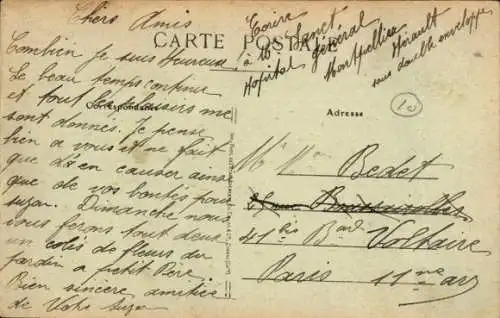 Chers Amis
Combien je suis heureux
le beau temps continue
et tout les plaisirs me
sont donnés. Je pense
bien a vous et ne fait
que d'en causer ainsi
que de vos bontés pour
suzon. Dimanche nous
vous ferons tout deux
un colis de fleurs du
jardin a petit Père.
Bien sincère amitiés
de Votre
CARTE POSTALE
Correspondance
Ecrire
à Mr Sanct
Hopital Général
Montpellier Hérault
sous double enveloppe
10
Adresse
Mr Mme Bedet
41 bis Bard Voltaire
Paris 11me arr